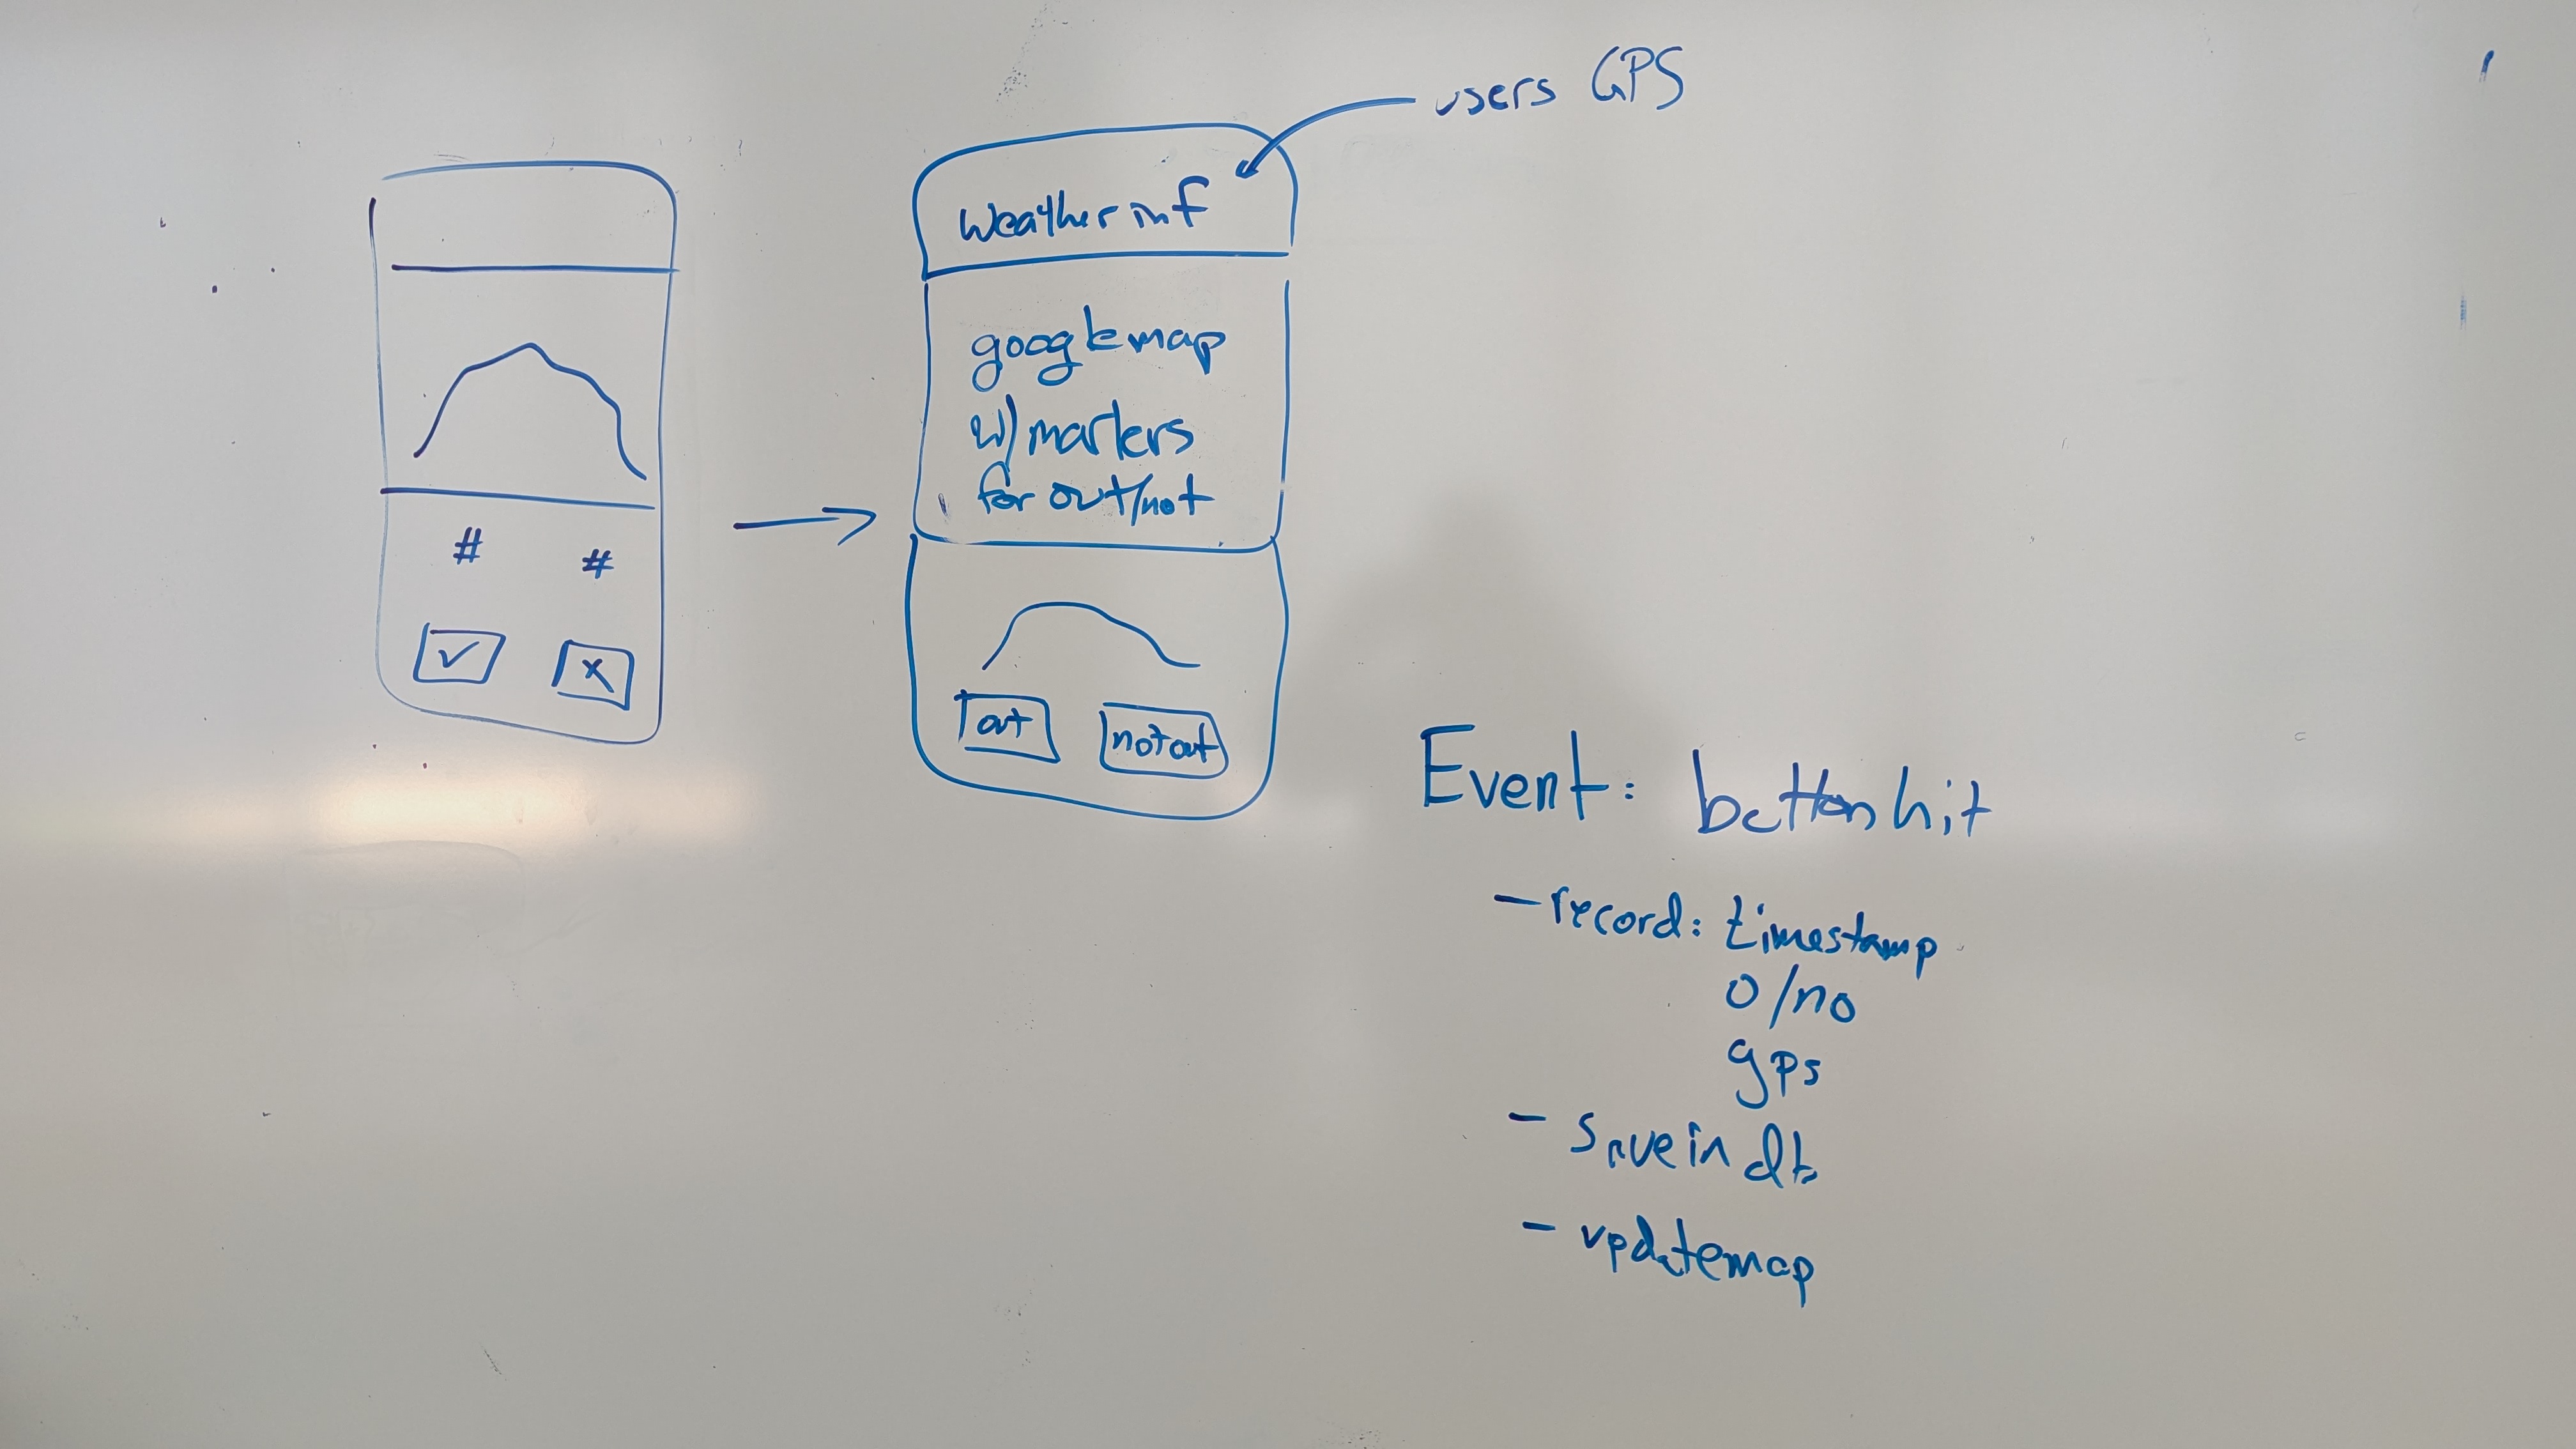 users GPS
weather inf
google map
w/ markers
for out/not
# #
✓ x
out not out
Event: button hit
- record: timestamp
o/no
gps
- save in db
- update map